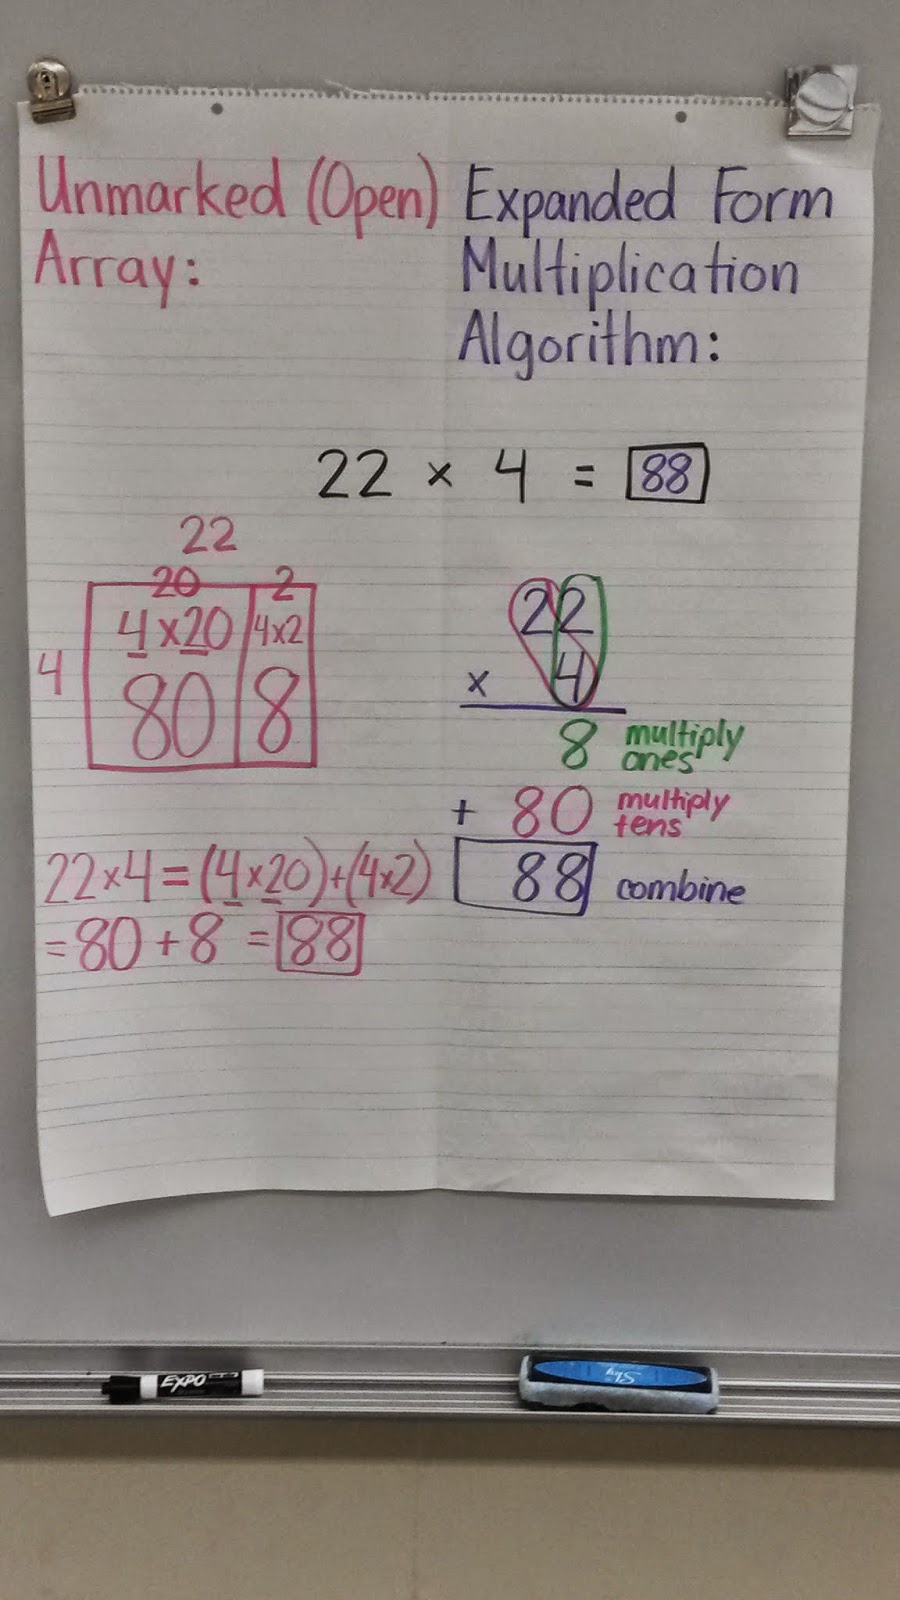 Unmarked (Open)
Array:
Expanded Form
Multiplication
Algorithm:
22 × 4 = 88
22
20 2
4×20 4×2
4
80 8
22×4=(4×20)+(4×2)
=80+8 =88
22
× 4
8 multiply
ones
+ 80 multiply
tens
88 combine
EXPO